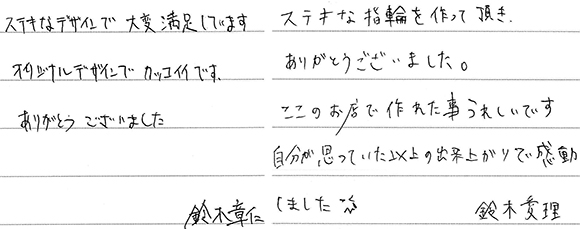 ステキなデザインで大変満足しています
オリジナルデザインでカッコイイです。
ありがとうございました
鈴木章仁
ステキな指輪を作って頂き、
ありがとうございました。
ここのお店で作れた事うれしいです
自分が思っていた以上の出来上がりで感動
しました
鈴木愛理